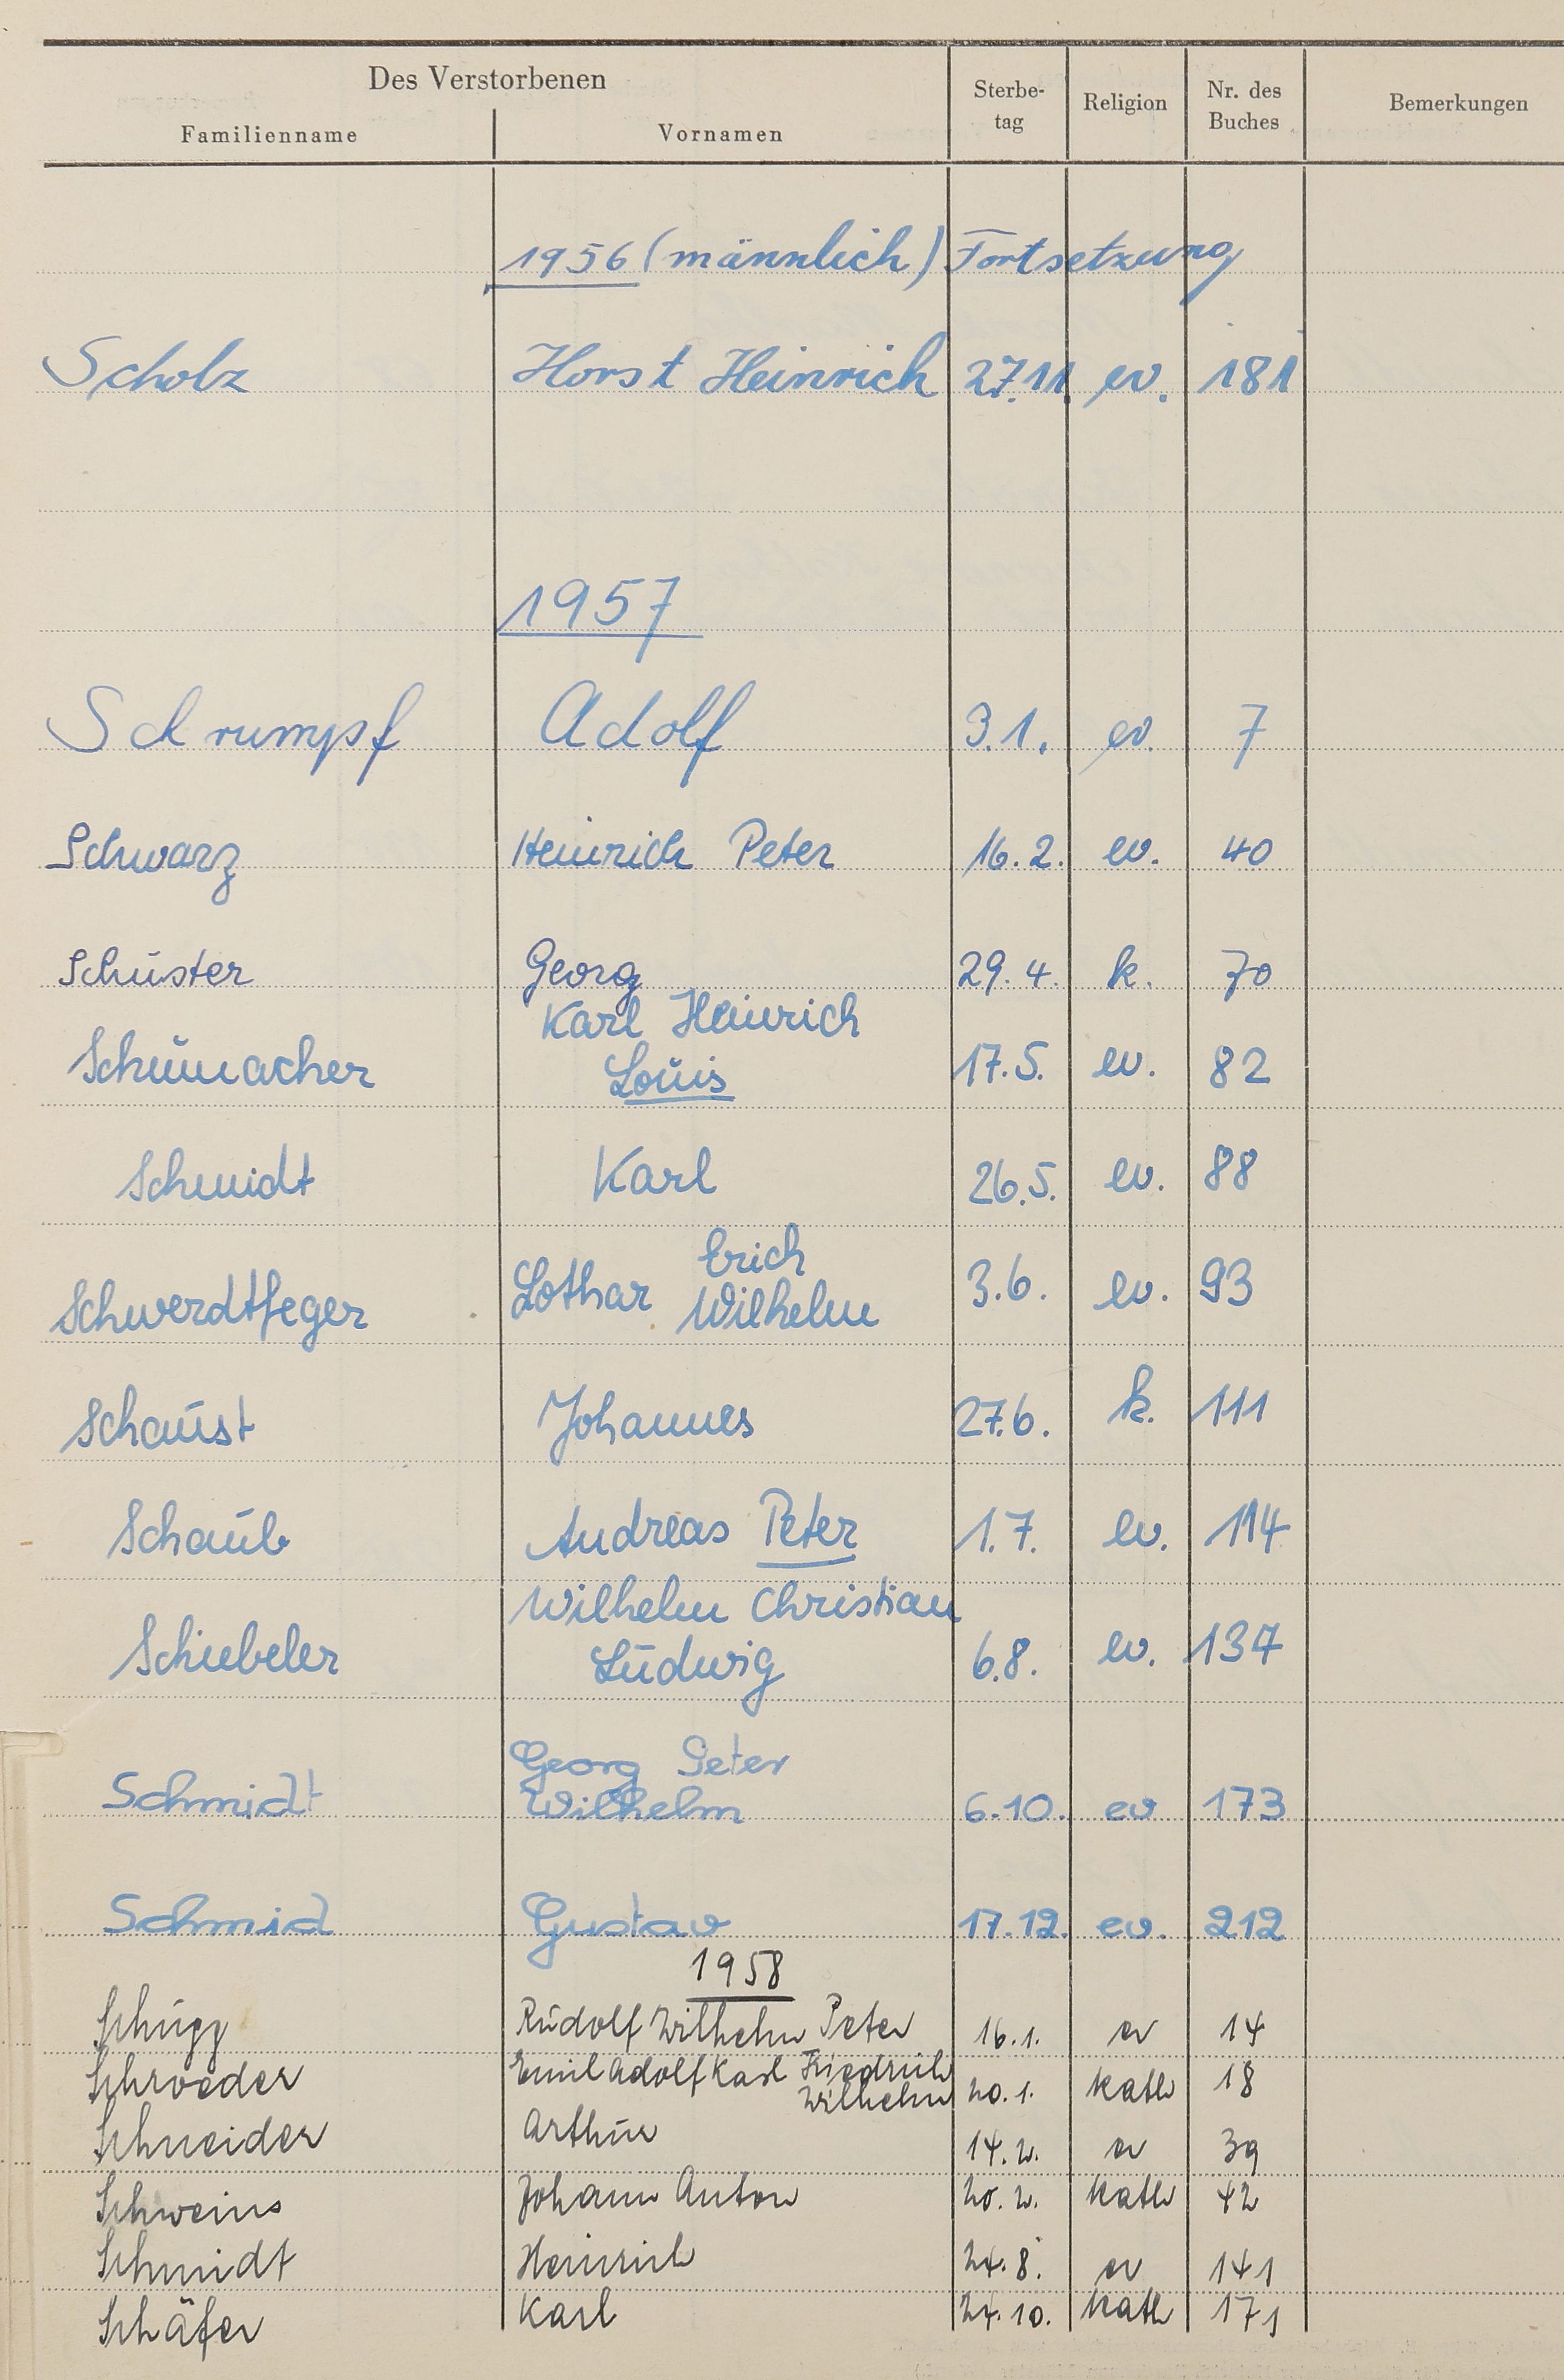 Des Verstorbenen
Familienname Vornamen Sterbe-tag Religion Nr. des Buches Bemerkungen
1956 (männlich) Fortsetzung
Scholz Horst Heinrich 27.11. ev. 181
1957
Schrumpf Adolf 3.1. ev. 7
Schwarz Heinrich Peter 16.2. ev. 40
Schuster Georg 29.4. k. 70
Karl Heinrich
Schumacher Louis 17.5. ev. 82
Schmidt Karl 26.5. ev. 88
Erich
Schwerdtfeger Lothar Wilhelm 3.6. ev. 93
Schaust Johannes 27.6. k. 111
Schaub Andreas Peter 1.7. ev. 114
Wilhelm Christian
Schiebeler Ludwig 6.8. ev. 137
Georg Peter
Schmidt Wilhelm 6.10. ev 173
Schmid Gustav 17.12. ev. 212
1958
Schupp Rudolf Wilhelm Peter 16.1. ev 14
Schroeder Emil Adolf Karl Friedrich 20.1. kath 18
Wilhelm
Schneider Arthur 14.2. ev 39
Schweins Johann Anton 20.2. kath 42
Schmidt Heinrich 24.8. ev 141
Schäfer Karl 24.10. kath 171